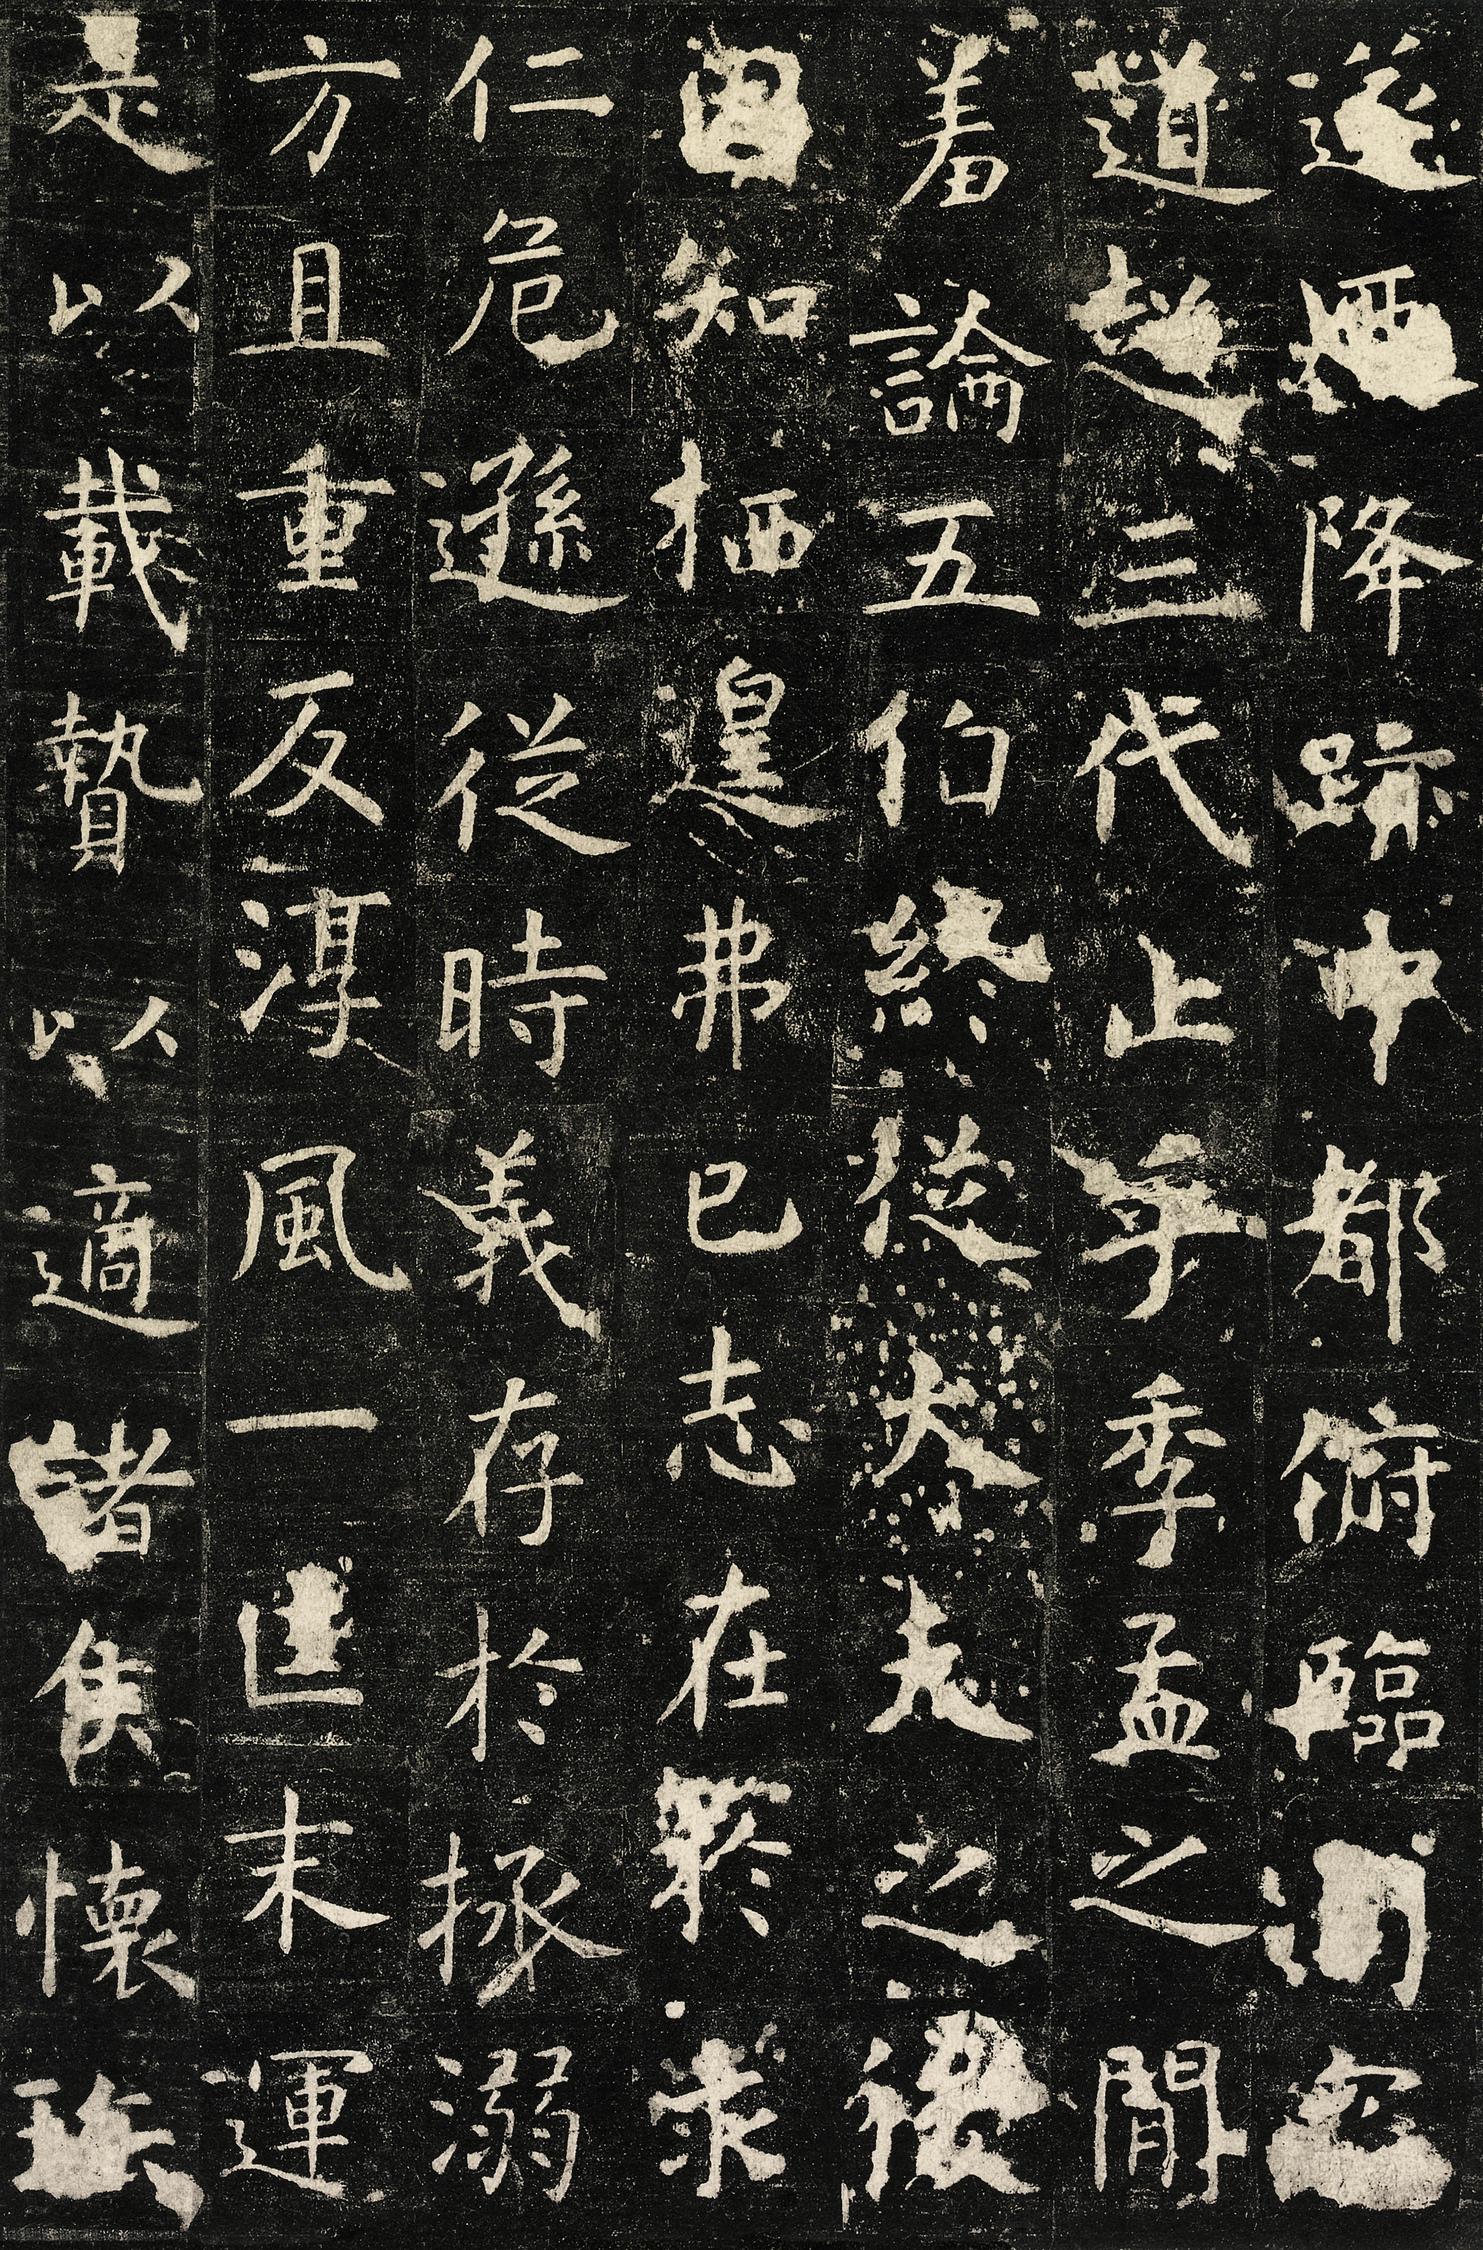 遂迺降跡中都俯臨司寇
道超三代止乎季孟之間
羞論五伯終從大夫之後
固知栖遑弗已志在於求
仁危遜從時義存於拯溺
方且重反淳風一匡末運
是以載贄以適諸侯懷